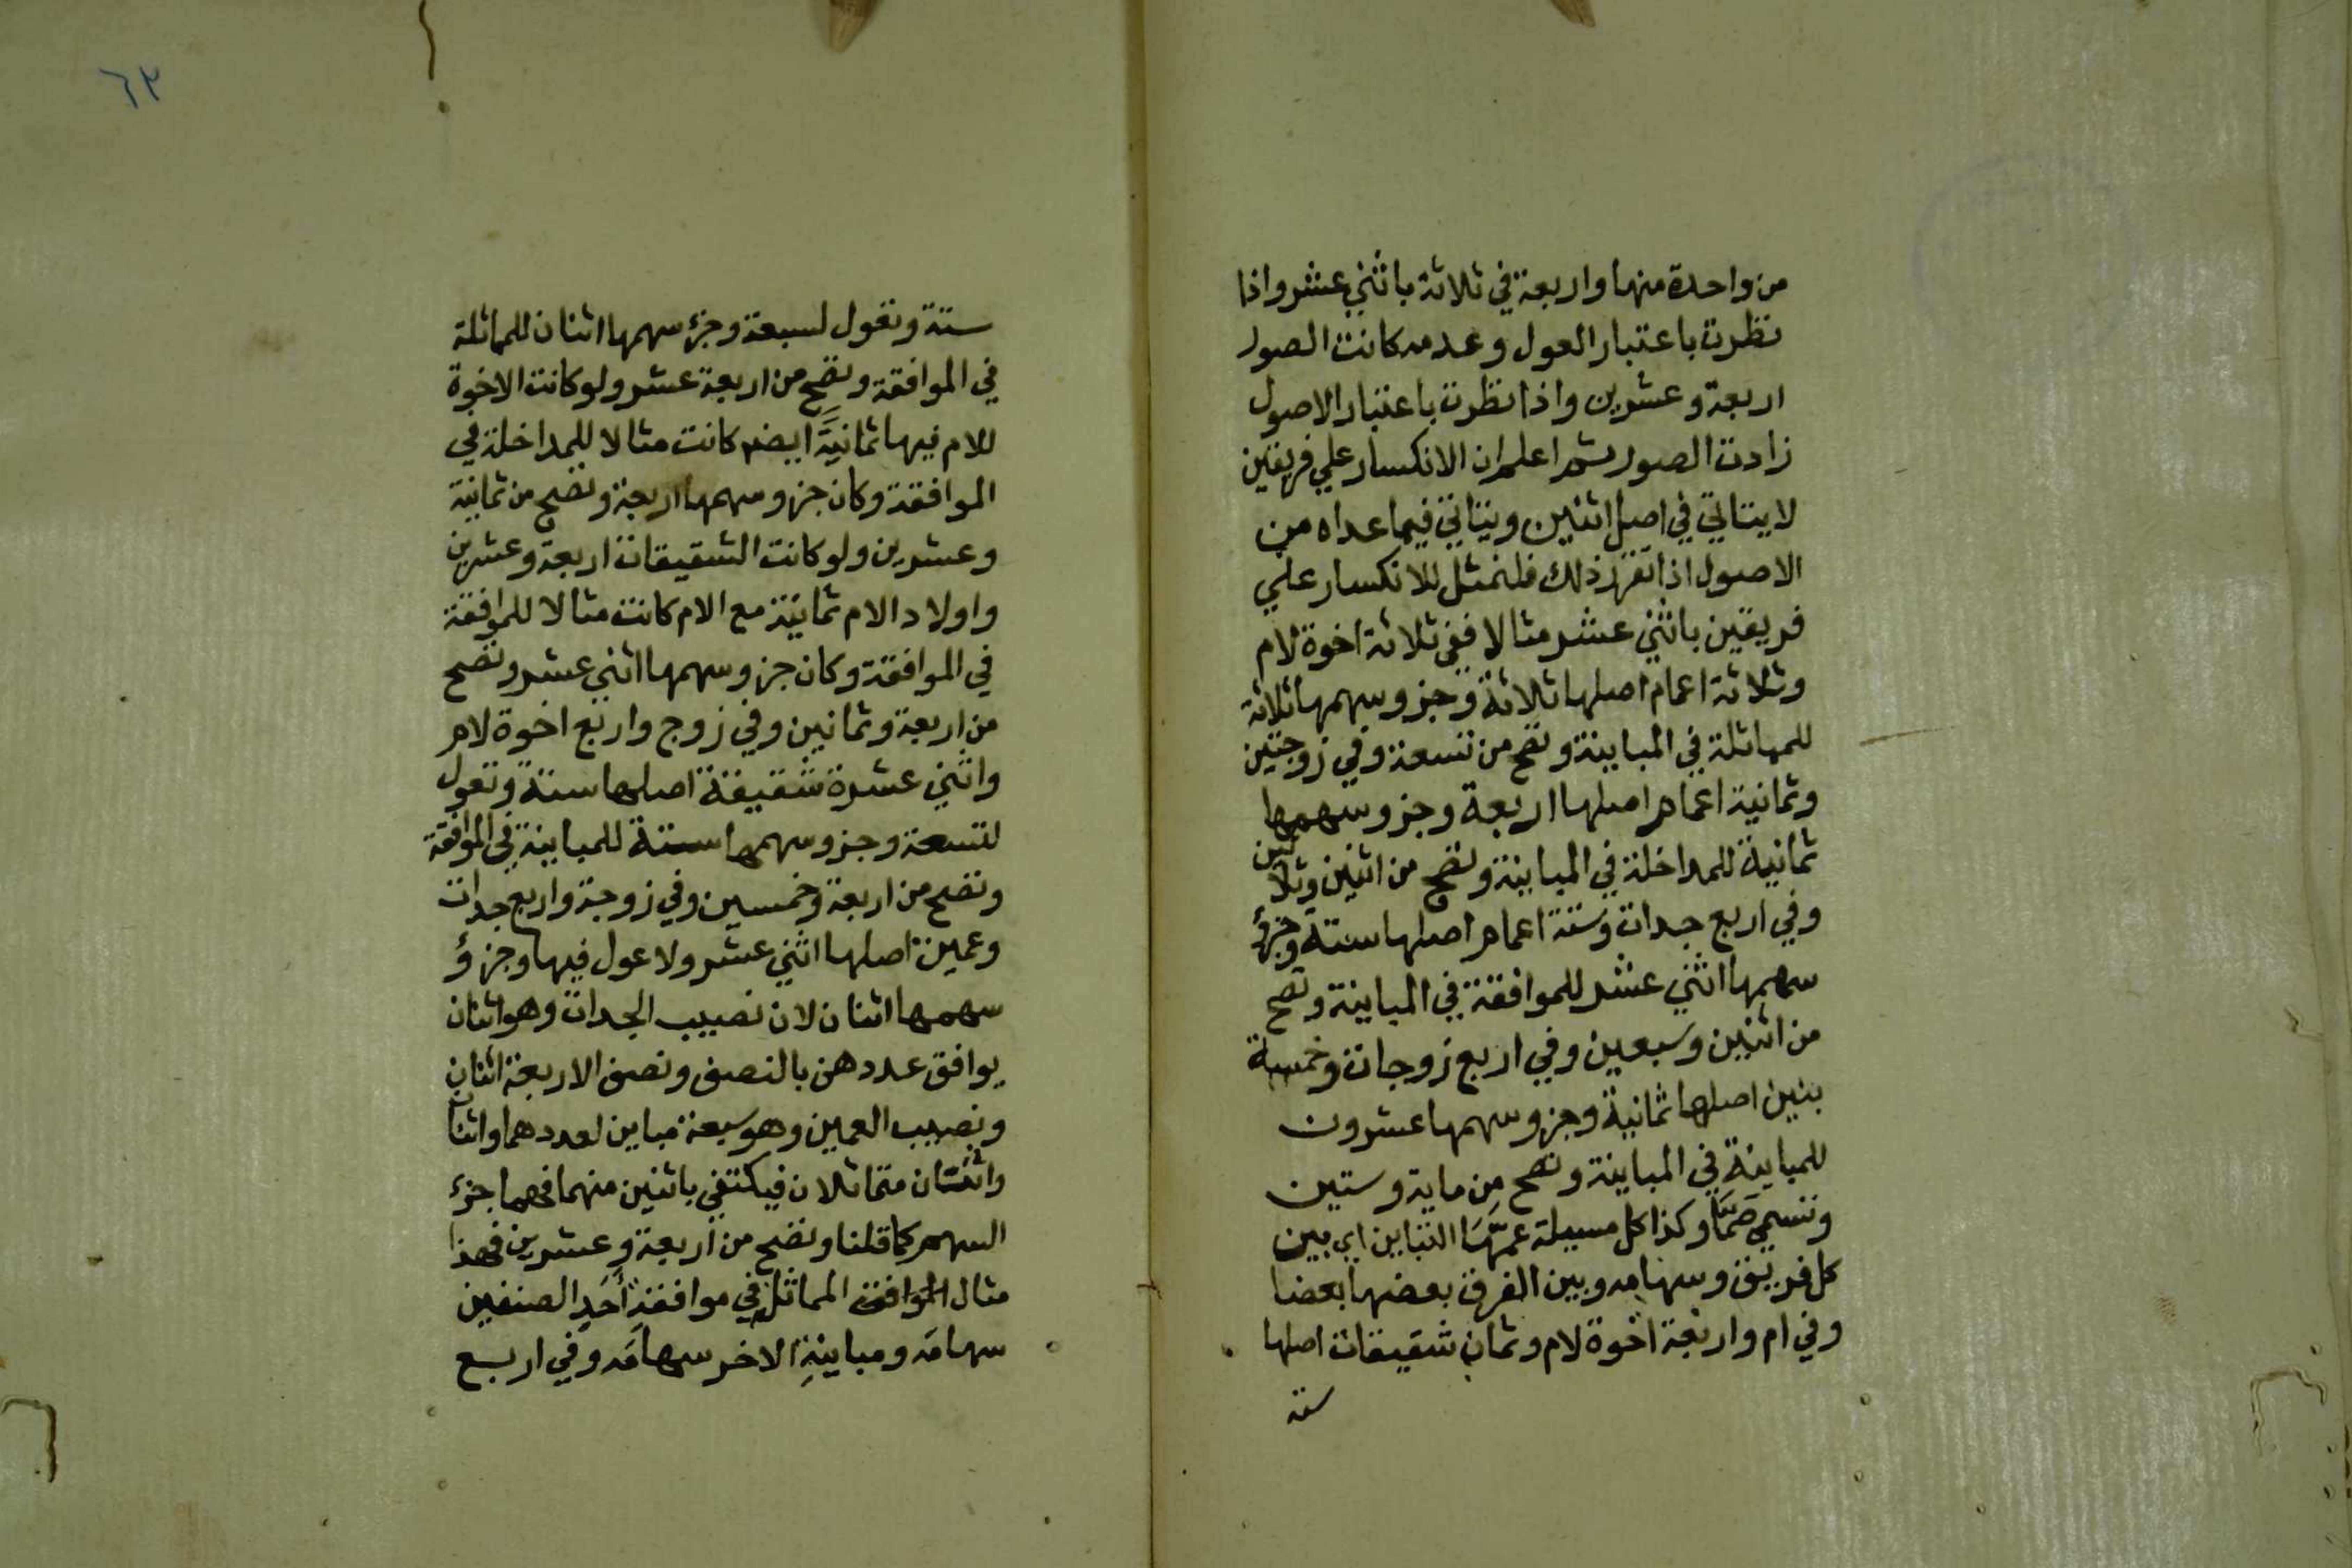 من واحدة منها واربعة في ثلاثة باثني عشر واذا
نظرت باعتبار العول وعدمه كانت الصور
اربعة وعشرين واذا نظرت باعتبار الاصول
زادت الصور ثم اعلم ان الانكسار علي فريقين
لا يتاتي في اصل اثنين ويتاتي فيما عداه من
الاصول اذا تقرر ذلك فلنمثل للانكسار علي
فريقين باثني عشر مثالا ففي ثلاثة اخوة لام
وثلاثة اعمام اصلها ثلاثة وجزو سهمها ثلاثة
للمماثلة في المباينة وتصح من تسعة وفي زوجتين
وثمانية اعمام اصلها اربعة وجزو سهمها
ثمانية للمداخلة في المباينة وتصح من اثنين وثلاثين
وفي اربع جدات وستة اعمام اصلها ستة وجزؤ
سهمها اثني عشر للموافقة في المباينة وتصح
من اثنين وسبعين وفي اربع زوجات وخمسة
بنين اصلها ثمانية وجزو سهمها عشرون
للمباينة في المباينة وتصح من ماية وستين
وتسمي صمَّا وكذا كل مسيلة عمَّهَا التباين اي بين
كل فريق وسهامه وبين الفرق بعضها بعضا
وفي ام واربعة اخوة لام وثمان شقيقات اصلها
ستة
٦٣
ستة وتعول لسبعة وجزء سهمها اثنان للمماثلة
في الموافقة وتصح من اربعة عشر ولو كانت الاخوة
للام فيها ثمانيَّة ايضا كانت مثالا للمداخلة في
الموافقة وكان جزو سهمها اربعة وتصح من ثمانية
وعشرين ولو كانت الشقيقات اربعة وعشرين
واولاد الام ثمانية مع الام كانت مثالا للموافقة
في الموافقة وكان جزو سهمها اثني عشر وتصح
من اربعة وثمانين وفي زوج واربع اخوة لام
واثني عشرة شقيقة اصلها ستة وتعول
لتسعة وجزو سهمها ستة للمباينة في الموافقة
وتصح من اربعة وخمسين وفي زوجة واربع جدات
وعمين اصلها اثني عشر ولا عول فيها وجزؤ
سهمها اثنان لان نصيب الجدات وهو اثنان
يوافق عددهن بالنصف ونصف الاربعة اثنان
ونصيب العمين وهو سبعة مباين لعددهما واثنان
واثنان متماثلان فيكتفي باثنين منهما فهما جزء
السهم كما قلنا وتصح من اربعة وعشرين فهذا
مثال الموافقة المماثلة في موافقةِ أَحَدِ الصنفين
سهامَه ومباينةِ الاخر سهامَه وفي اربع